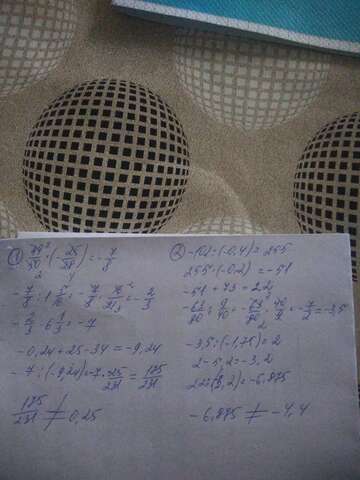 ① 49/50 · (- 25/28) = - 7/8
- 7/8 : 1 5/16 = - 7/8 · 16/21 = - 2/3
- 2/3 - 6 1/3 = -7
-0,24+25-34 = -9,24
-7 : (-9,24) = 7 · 25/231 = 175/231
≠ 0,25
② -102 : (-0,4) = 255
255 · (-0,2) = -51
-51 + 73 = 22
- 63/80 : 9/40 = - 63/80 · 40/9 = - 7/2 = -3,5
-3,5 : (-1,75) = 2
2 - 5,2 = -3,2
22 : (-3,2) = -6,875
-6,875 ≠ -4,4